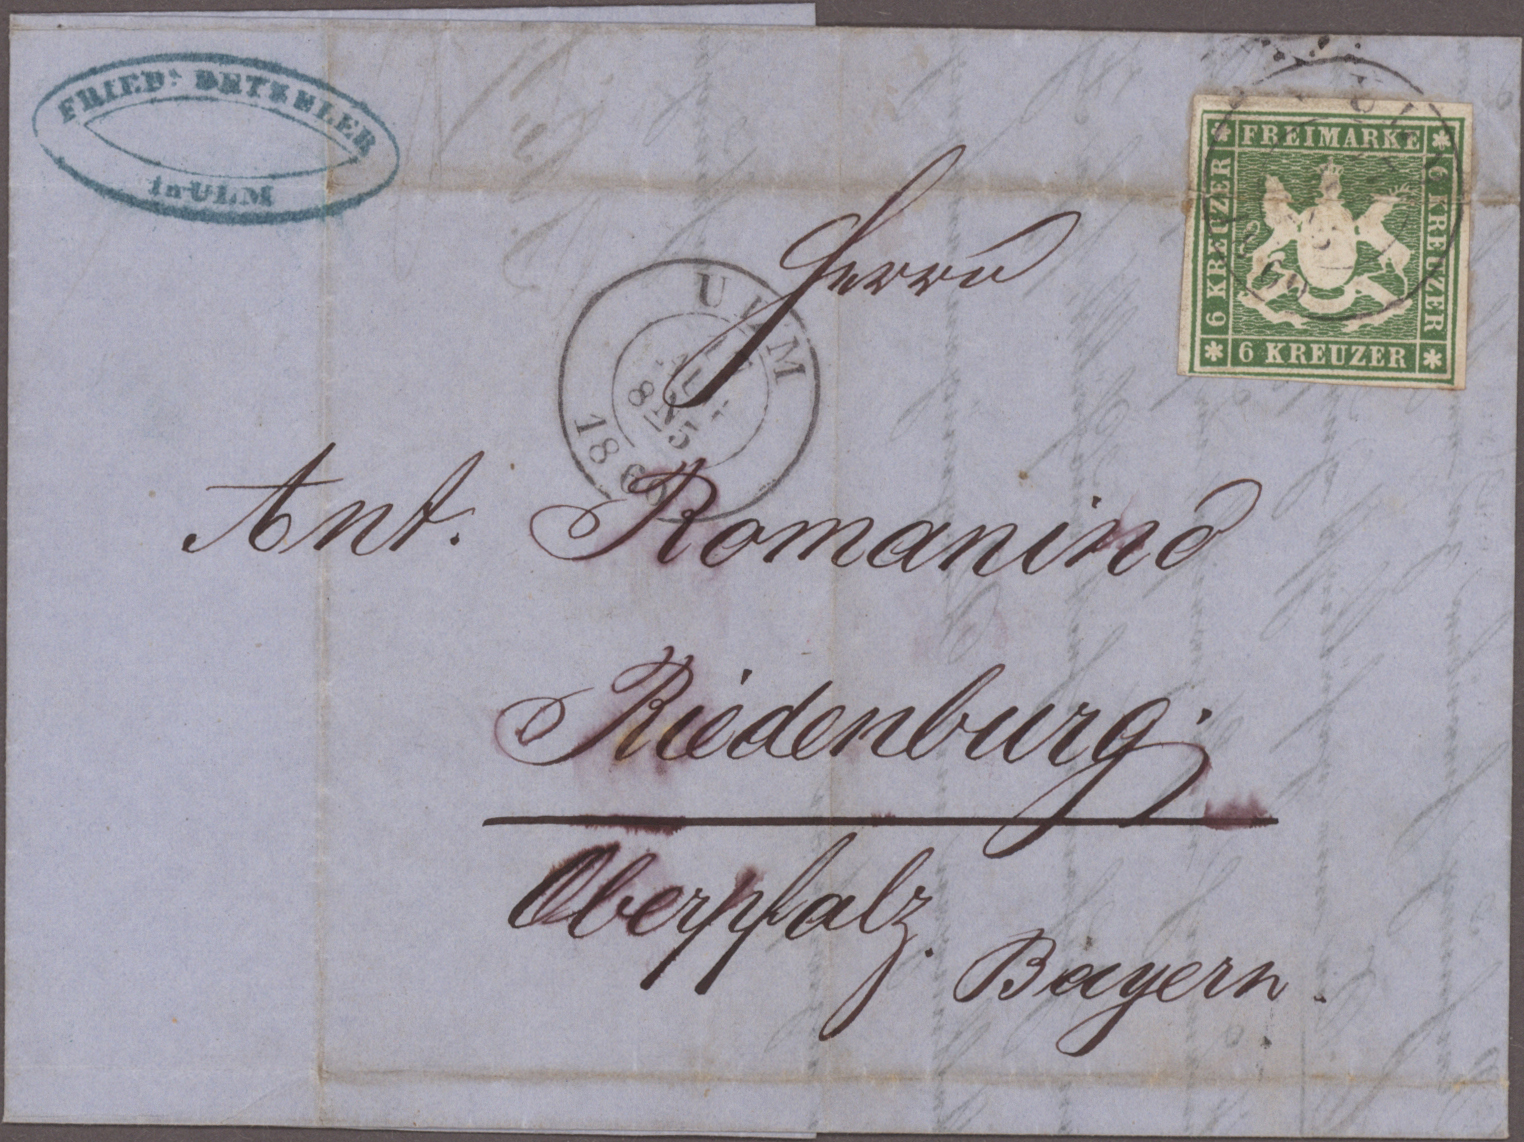 FRIED. DETZELER
in ULM
FREIMARKE
6 KREUZER
6 KREUZER
6 KREUZER
Herrn
ULM
8 N 5
1860
Ant. Romanino
Riedenburg.
Oberpfalz.
Bayern.